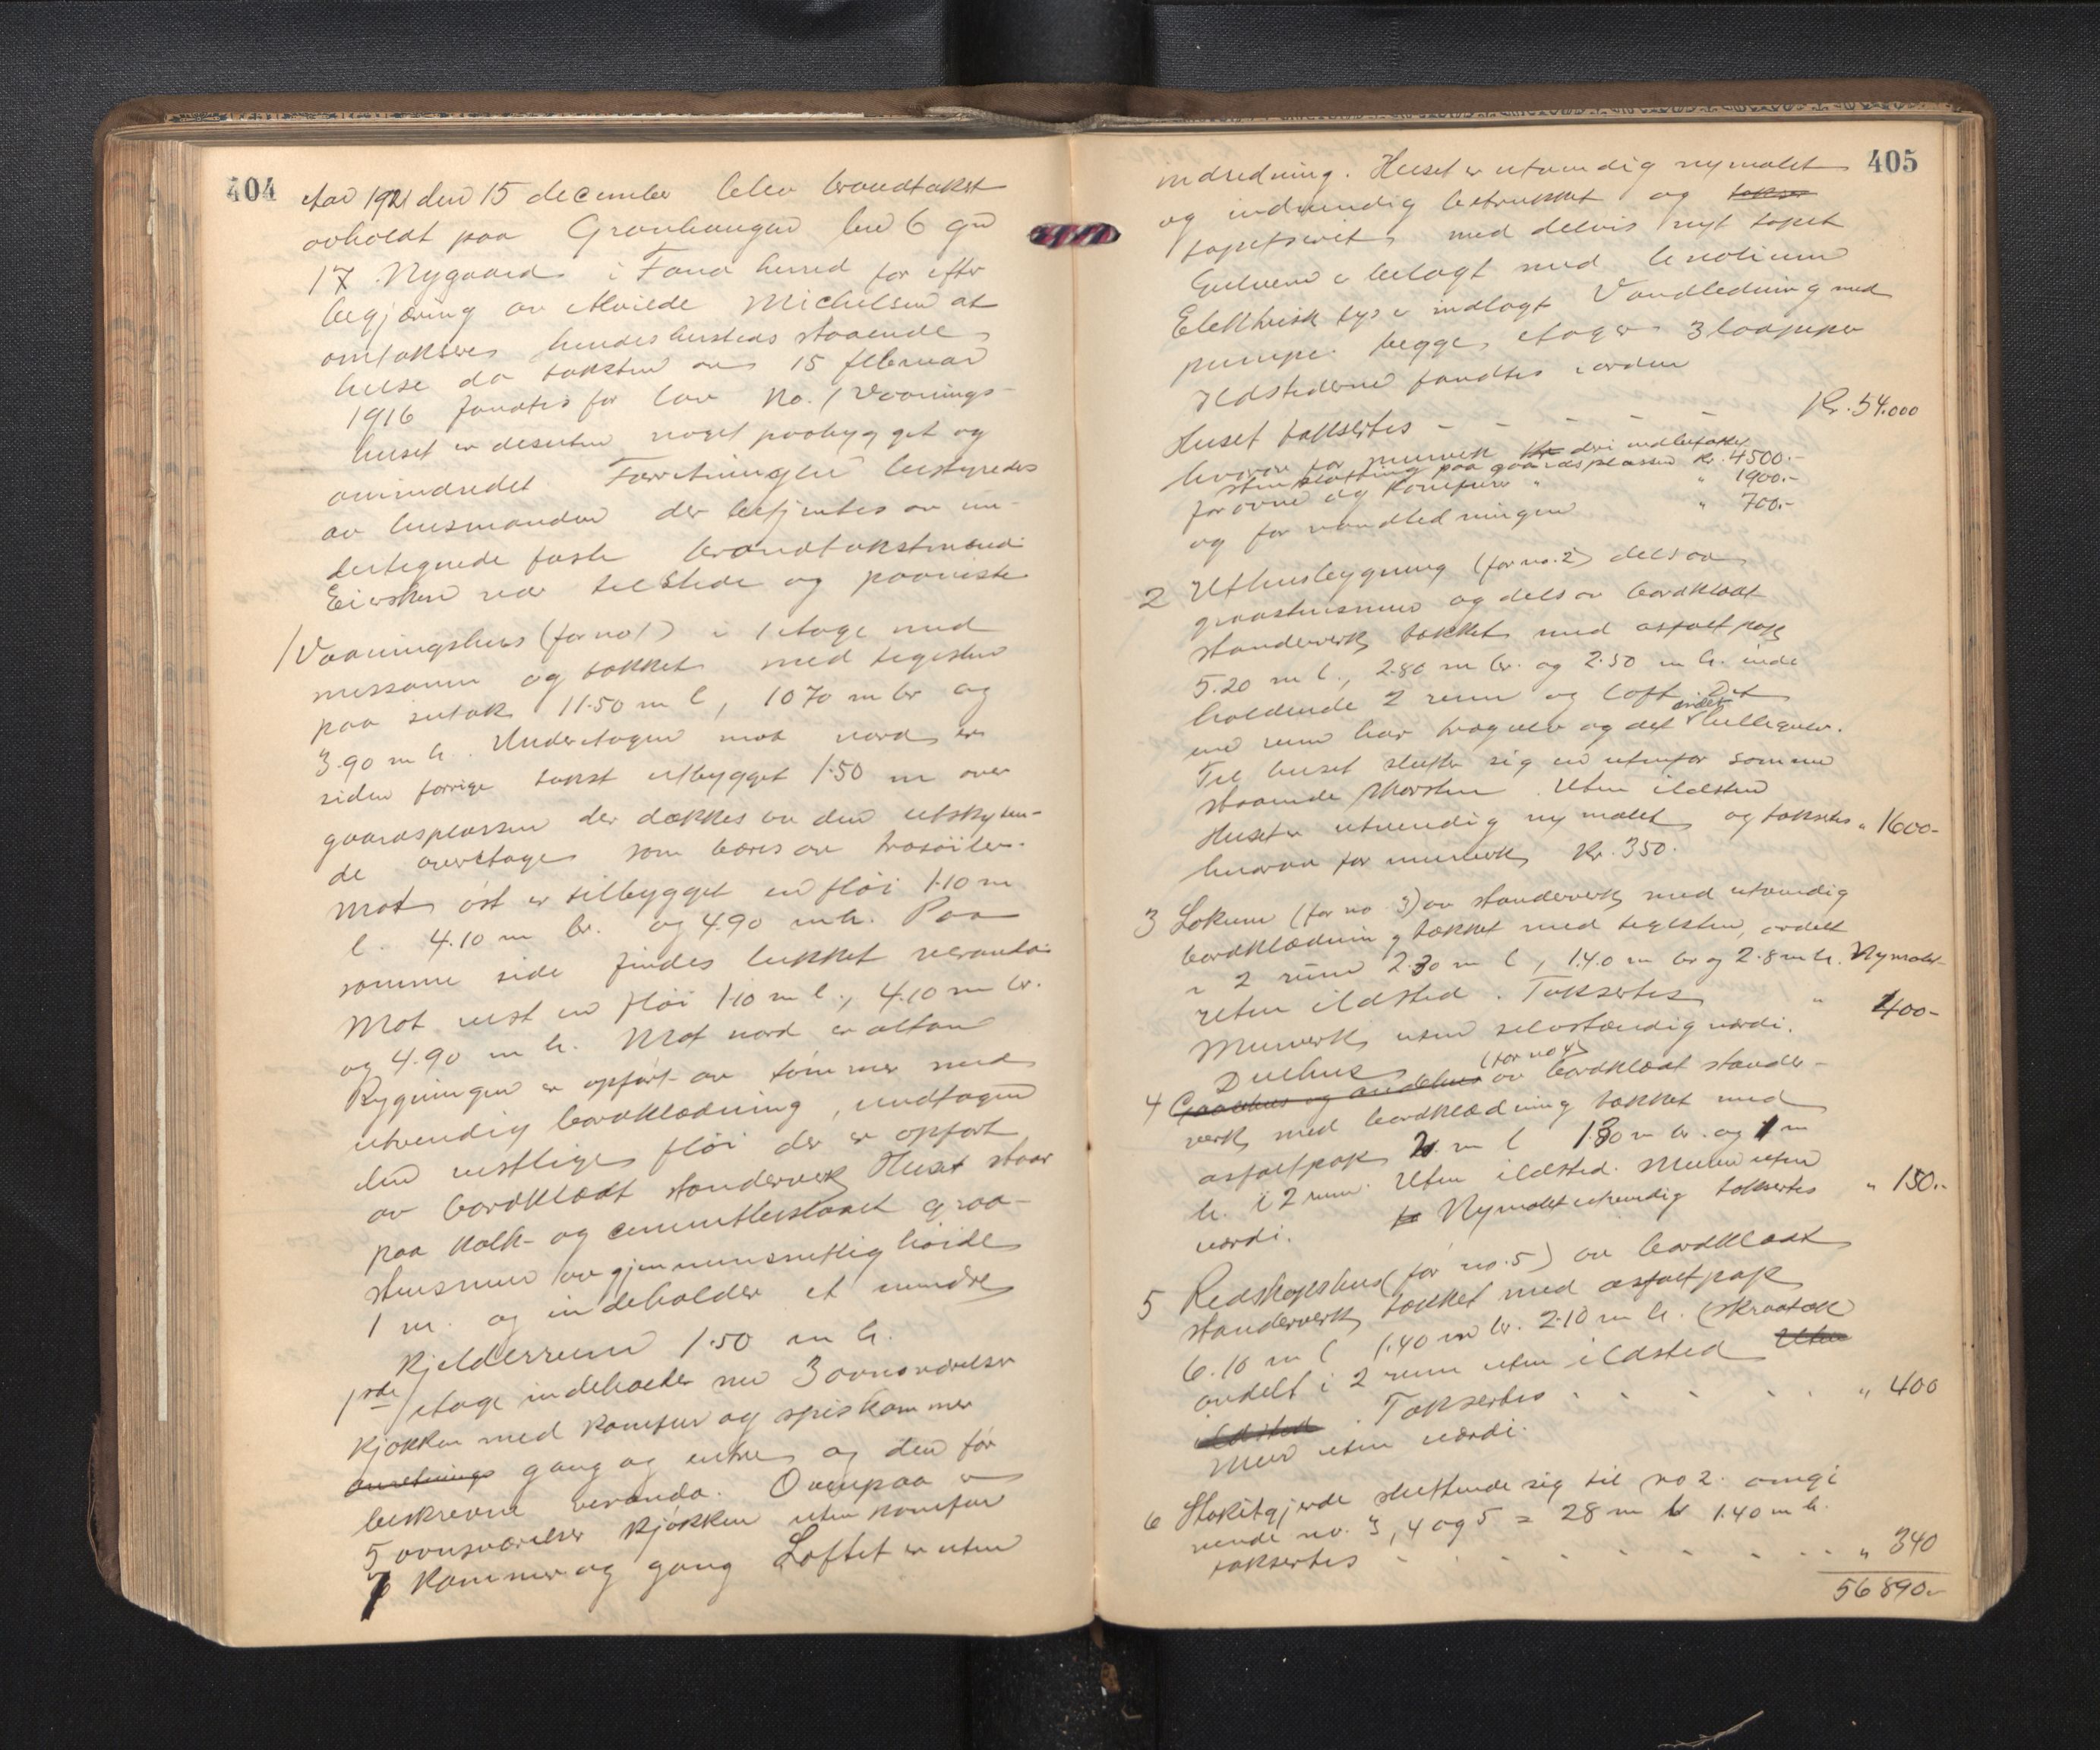 404
Aar 1921 den 15 december blev brandtakst
avholdt paa Grønhaugen bn 6 gn
17 Nygaard i Fana herred for efter
begjæring av Alvilde Michelsen at
omtaksere hendes husteds staaende
huse da taksten av 15 februar
1916 fandtes for lav No. 1 Vaanings-
huset er desuten noget paabygget og
omindredet. Forretningen bestyredes
av husmanden der betjentes av un-
dertegnede faste brandtakstmænd
Eiersken var tilstede og paaviste
1 Vaaningshus (før no 1) i 1 etage med
messanin og takket med teglsten
paa sutak 11.50 m l, 10 70 m br og
3.90 m h. Underetagen mot nord er
siden forrige takst utbygget 1.50 m over
gaardsplassen der dækkes av den utskyten-
de overetage som bæres av træsøiler.
Mot øst er tilbygget en fløi 1.10 m
l. 4.10 m br. og 4.90 m h. Paa
samme side findes lukket veranda
Mot vest en fløi 1.10 m l., 4.10 m br.
og 4.90 m h. Mot nord er altan
Bygningen er opført av tømmer med
utvendig bordklædning, undtagen
den vestlige fløi der er opført
av bordklædt standerverk Huset staar
paa kalk- og cementbeslaaet graa-
stensmur av gjennemsnitlig høide
1 m. og indeholder et mindre
kjelderrum 1.50 m h.
1ste etage indeholder nu 3 ovnsværelser
kjøkken med komfur og spiskammer
anretnings gang og entre og den før
beskrevne veranda. Ovenpaa er
5 ovnsværelser kjøkken uten komfur
1 kammer og gang Loftet er uten
405
indredning. Huset er utvendig nymalet
og indvendig betrukket og takser
tapetseret med delvis nyt tapet
Gulvene er belagt med linolium
Elektrisk lys er indlagt Vandledning med
pumpe. begge etager 3 laapiper
Ildstederne fandtes i orden
Huset taksertes - - - - - - Kr. 54.000
hvorav for murverk deri indbefattet
stenstøtning paa gaardsplassen Kr. 4500.-
for ovne og komfurer " " 1900.-
og for vandledningen " 700.-
2 Uthusbygning (før no. 2) dels av
graastensmur og dels av bordklædt
standerverk takket med asfaltpap
5.20 m l., 2.80 m br. og 2.50 m h. inde
holdende 2 rum og loft. Det
ene rum har trægulv og det andet hellegulv.
Til huset slutter sig en utenfor samme
staaende skorsten. Uten ildsted
Huset er utvendig nymalet og taksertes " 1600-
hvorav for murverk Kr. 350.
3 Lokum (før no 3) av standerverk med utvendig
bordklædning takket med teglsten, avdelt
i 2 rum 2.30 m l, 1.40 m br og 2.8 m h. Nymalet
uten ildsted. Taksertes " 400-
Murverk uten selvstændig værdi.
Duehus (før no 4)
4 Gaasehus og andehus av bordklædt stander-
verk med bordklædning takket med
asfaltpap 2 m l 1.30 m br. og 1 m
h. i 2 rum. Uten ildsted. Muren uten
værdi. ta Nymalet utvendig taksertes " 150.-
5 Redskapshus (før no. 5) av bordklædt
standerverk takket med asfaltpap
6.10 m l 1.40 m br. 2.10 m h. (skraatak
avdelt i 2 rum uten ildsted Uten
ildsted. Taksertes - - - - - - " 400
Mur uten værdi.
6 Stakitgjerde sluttende sig til no 2. omgi
vende no. 3, 4 og 5 = 28 m l 1.40 m h.
taksertes - - - - - - - - " 340
56 890.-